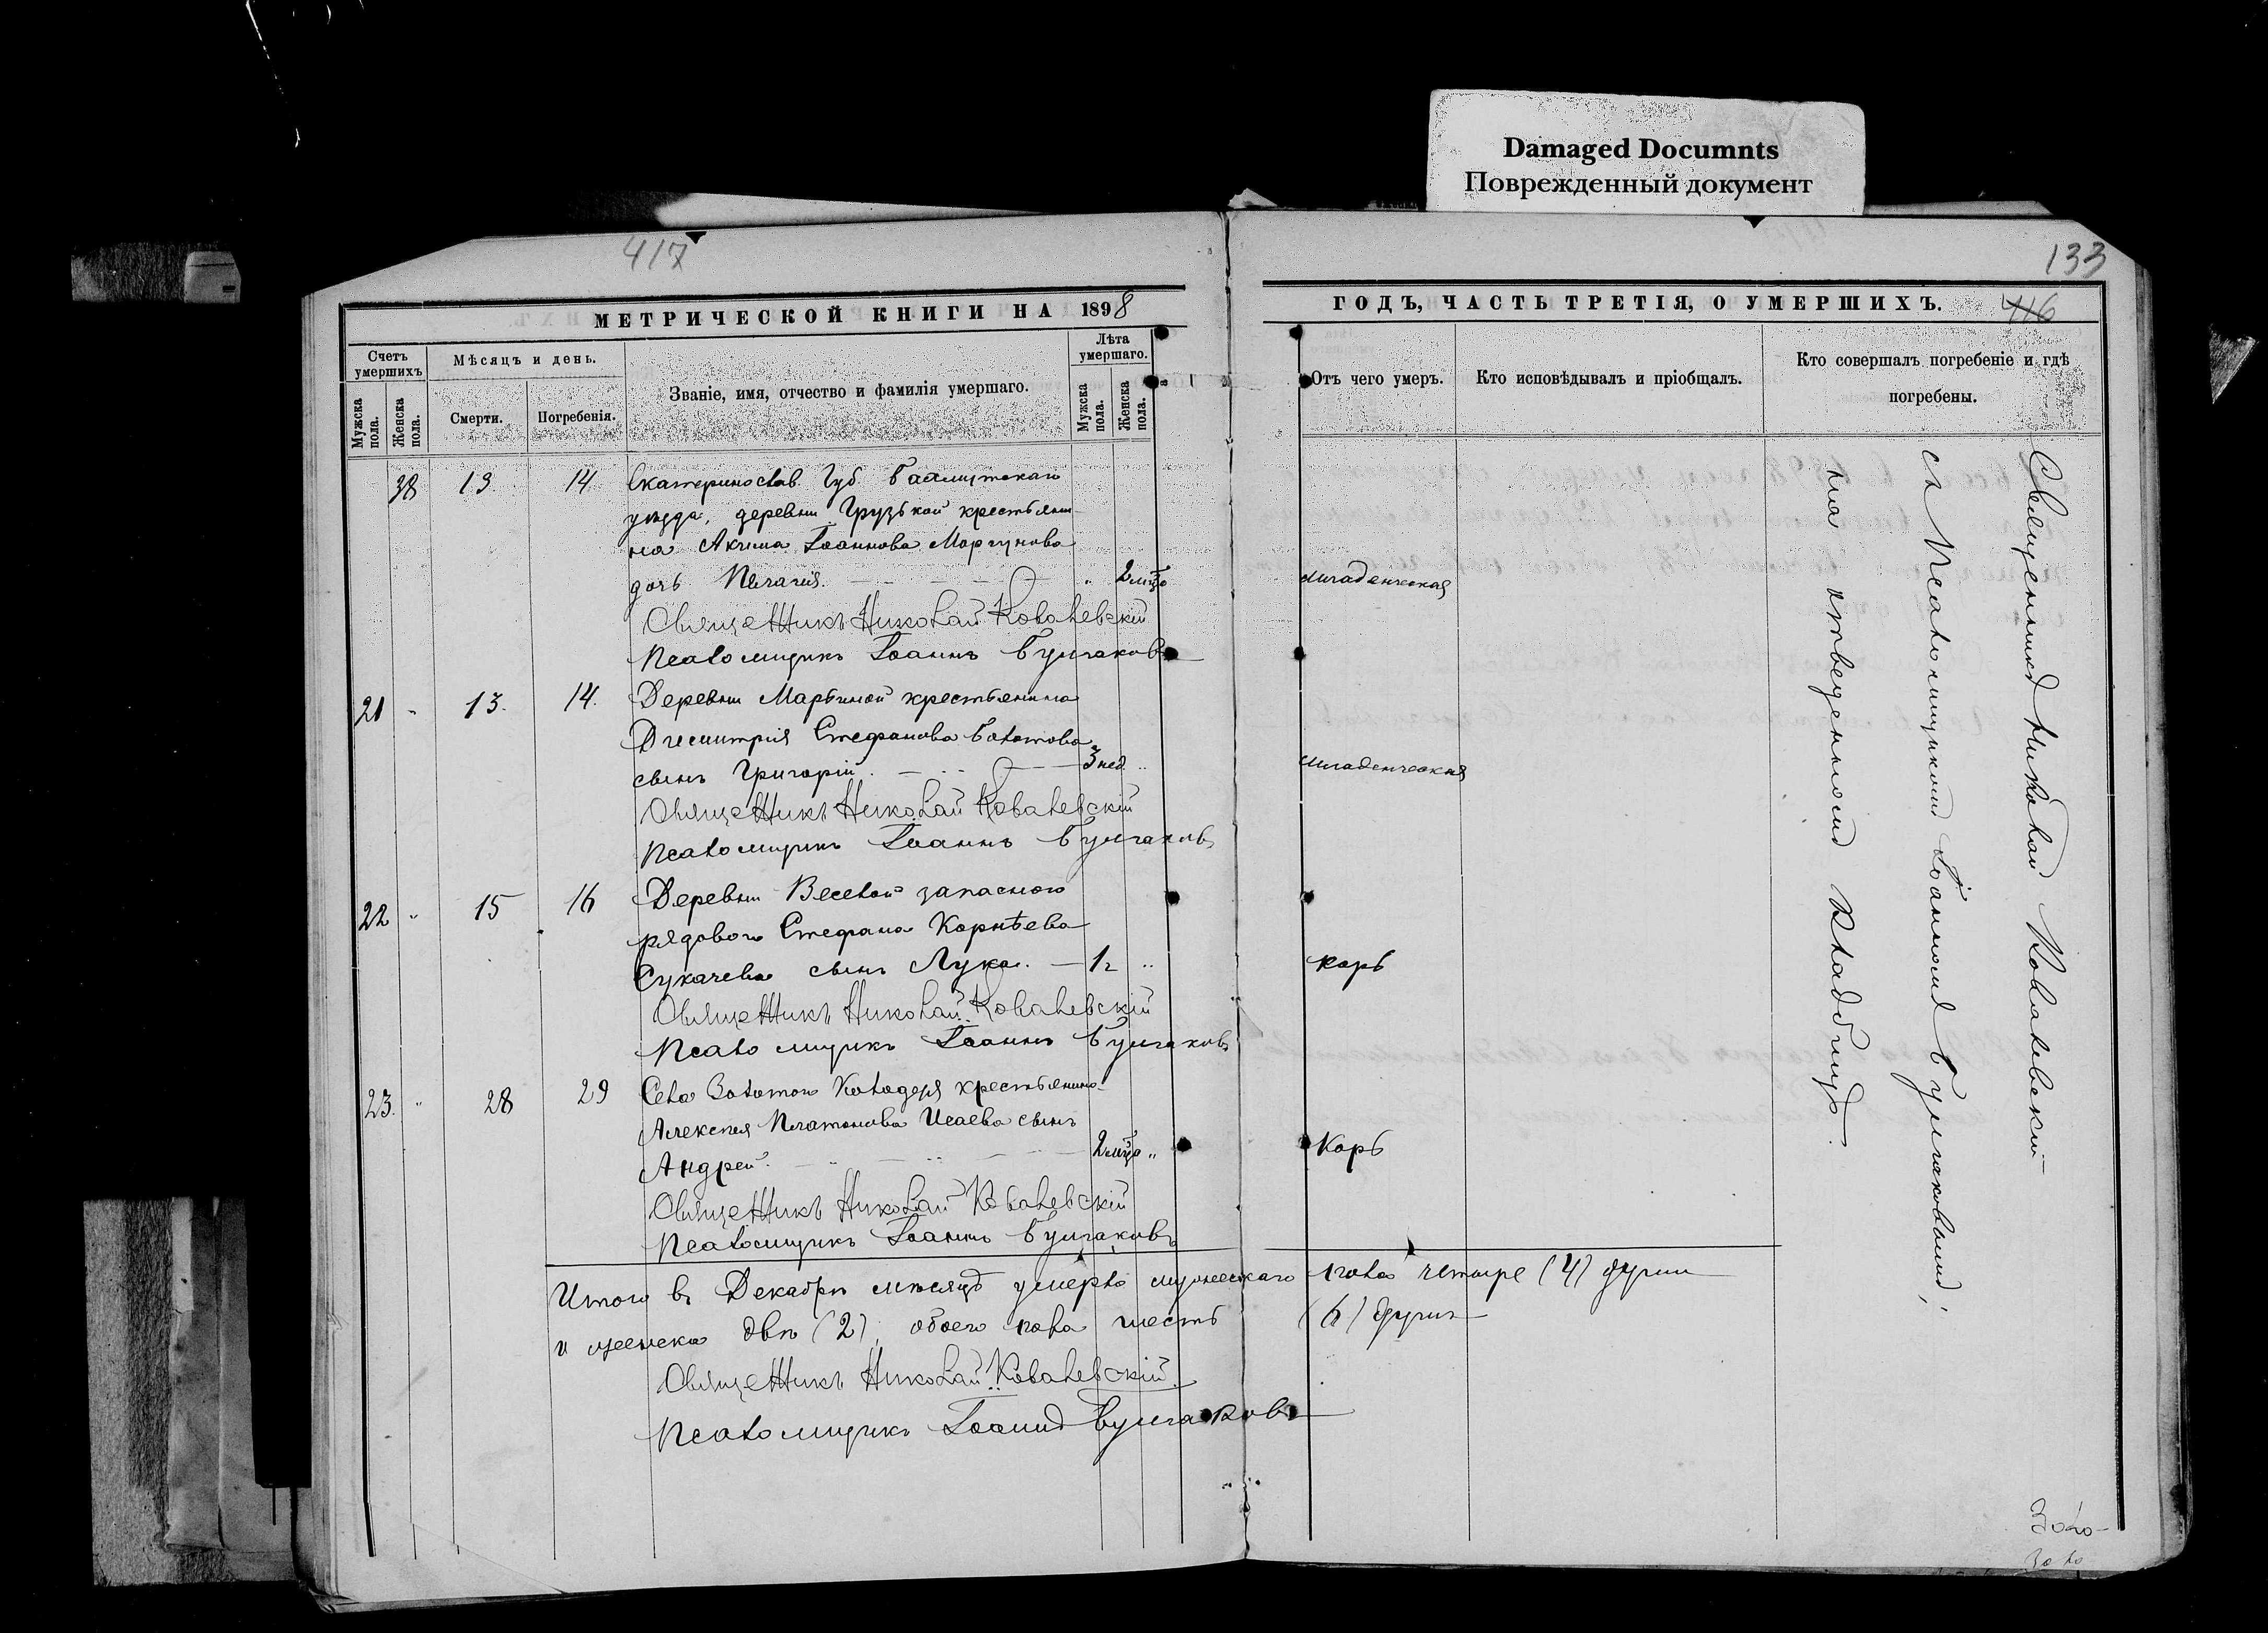 Damaged Documnts
Поврежденный документ
417
133
МЕТРИЧЕСКОЙ КНИГИ НА 1898
ГОДЪ, ЧАСТЬ ТРЕТІЯ, О УМЕРШИХЪ.
416
Счетъ умершихъ
Мужска пола.
Женска пола.
Мѣсяцъ и день.
Смерти.
Погребенія.
Званіе, имя, отчество и фамилія умершаго.
Лѣта умершаго.
Мужска пола.
Женска пола.
Отъ чего умеръ.
Кто исповѣдывалъ и пріобщалъ.
Кто совершалъ погребеніе и гдѣ
погребены.
38 13. 14 Екатеринослав. Губ. Бахмутскаго
уѣзда, деревни Грузской крестьяни-
на Акима Іоаннова Моргунова
дочь Пелагія. " 2 мца младенческая
Священникъ Николай Ковалевскій
Псаломщикъ Іоаннъ Булгаковъ
21 " 13. 14. Деревни Марьиной крестьянина
Димитрія Стефанова Болотова
сынъ Григорій. 3 нед. " младенческая
Священникъ Николай Ковалевскій
Псаломщикъ Іоаннъ Булгаковъ
22 " 15 16 Деревни Веселой запаснаго
рядового Стефана Корнѣева
Сукачева сынъ Лука. 1 г. " корь
Священникъ Николай Ковалевскій
Псаломщикъ Іоаннъ Булгаковъ
23. " 28 29 Села Золотого Колодезя крестьянина
Алексѣя Платонова Исаева сынъ
Андрей. 2 мца " Корь
Священникъ Николай Ковалевскій
Псаломщикъ Іоаннъ Булгаковъ
Священникъ Николай Ковалевскій
съ Псаломщикомъ Іоанномъ Булгаковымъ;
на отведенномъ кладбищѣ.
Итого въ Декабрѣ мѣсяцѣ умерло мужескаго пола четыре (4) души
и женска двѣ (2), обоего пола шесть (6) душъ
Священникъ Николай Ковалевскій.
Псаломщикъ Іоаннъ Булгаковъ
Золо-
Золо